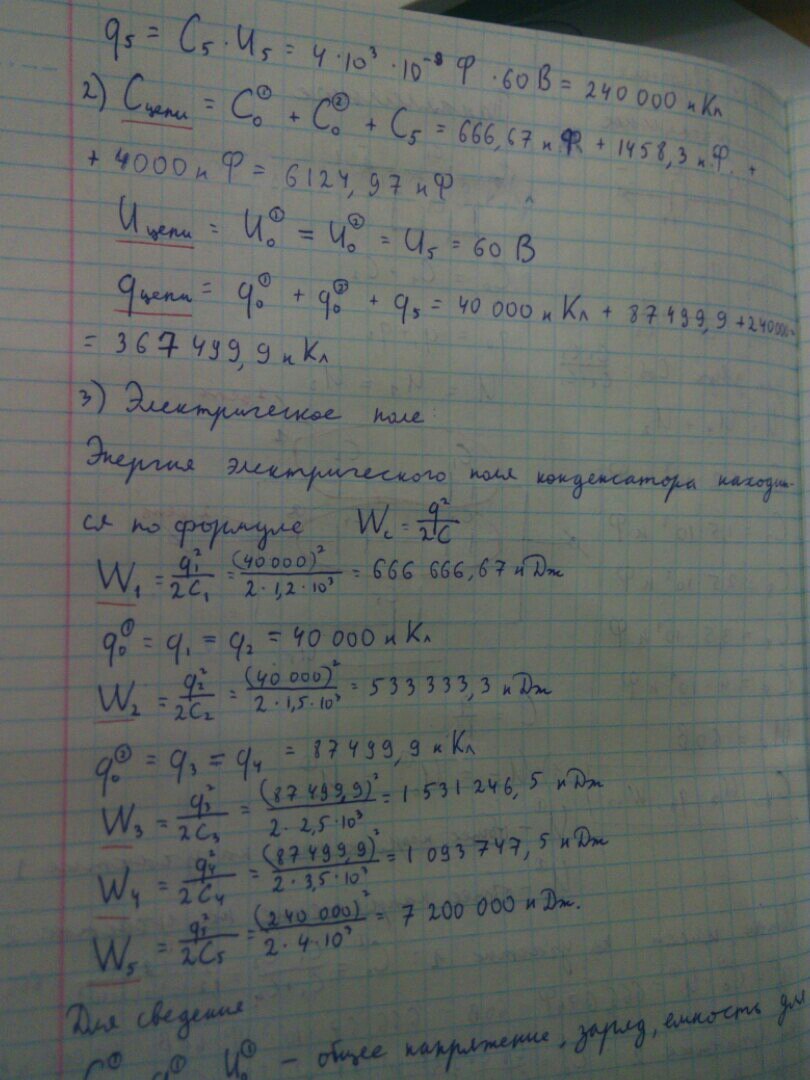 q₅ = C₅ · U₅ = 4·10³ · 10⁻⁸ Ф · 60 В = 240 000 нКл
2) Cцепи = C₀① + C₀② + C₅ = 666,67 нФ + 1458,3 нФ. +
+ 4000 нФ = 6124,97 нФ
Uцепи = U₀① = U₀② = U₅ = 60 В
qцепи = q₀① + q₀② + q₅ = 40 000 нКл + 87499,9 + 240000 =
= 367 499,9 нКл
3) Электрическое поле:
Энергия электрического поля конденсатора находит-
ся по формуле W_c = q²/2C
W₁ = q₁²/2C₁ = (40 000)²/2·1,2·10³ = 666 666,67 нДж
q₀① = q₁ = q₂ = 40 000 нКл
W₂ = q₂²/2C₂ = (40 000)²/2·1,5·10³ = 533 333,3 нДж
q₀② = q₃ = q₄ = 87 499,9 нКл
W₃ = q₃²/2C₃ = (87 499,9)²/2·2,5·10³ = 1 531 246,5 нДж
W₄ = q₄²/2C₄ = (87 499,9)²/2·3,5·10³ = 1 093 747,5 нДж
W₅ = q₅²/2C₅ = (240 000)²/2·4·10³ = 7 200 000 нДж.
Для сведения
U₀① – общее напряжение, заряд, емкость для